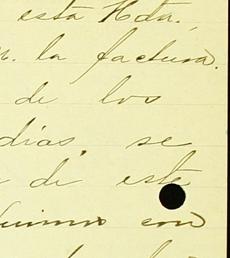 esta Hda,
la factura.
de los
dias, se
de este
con